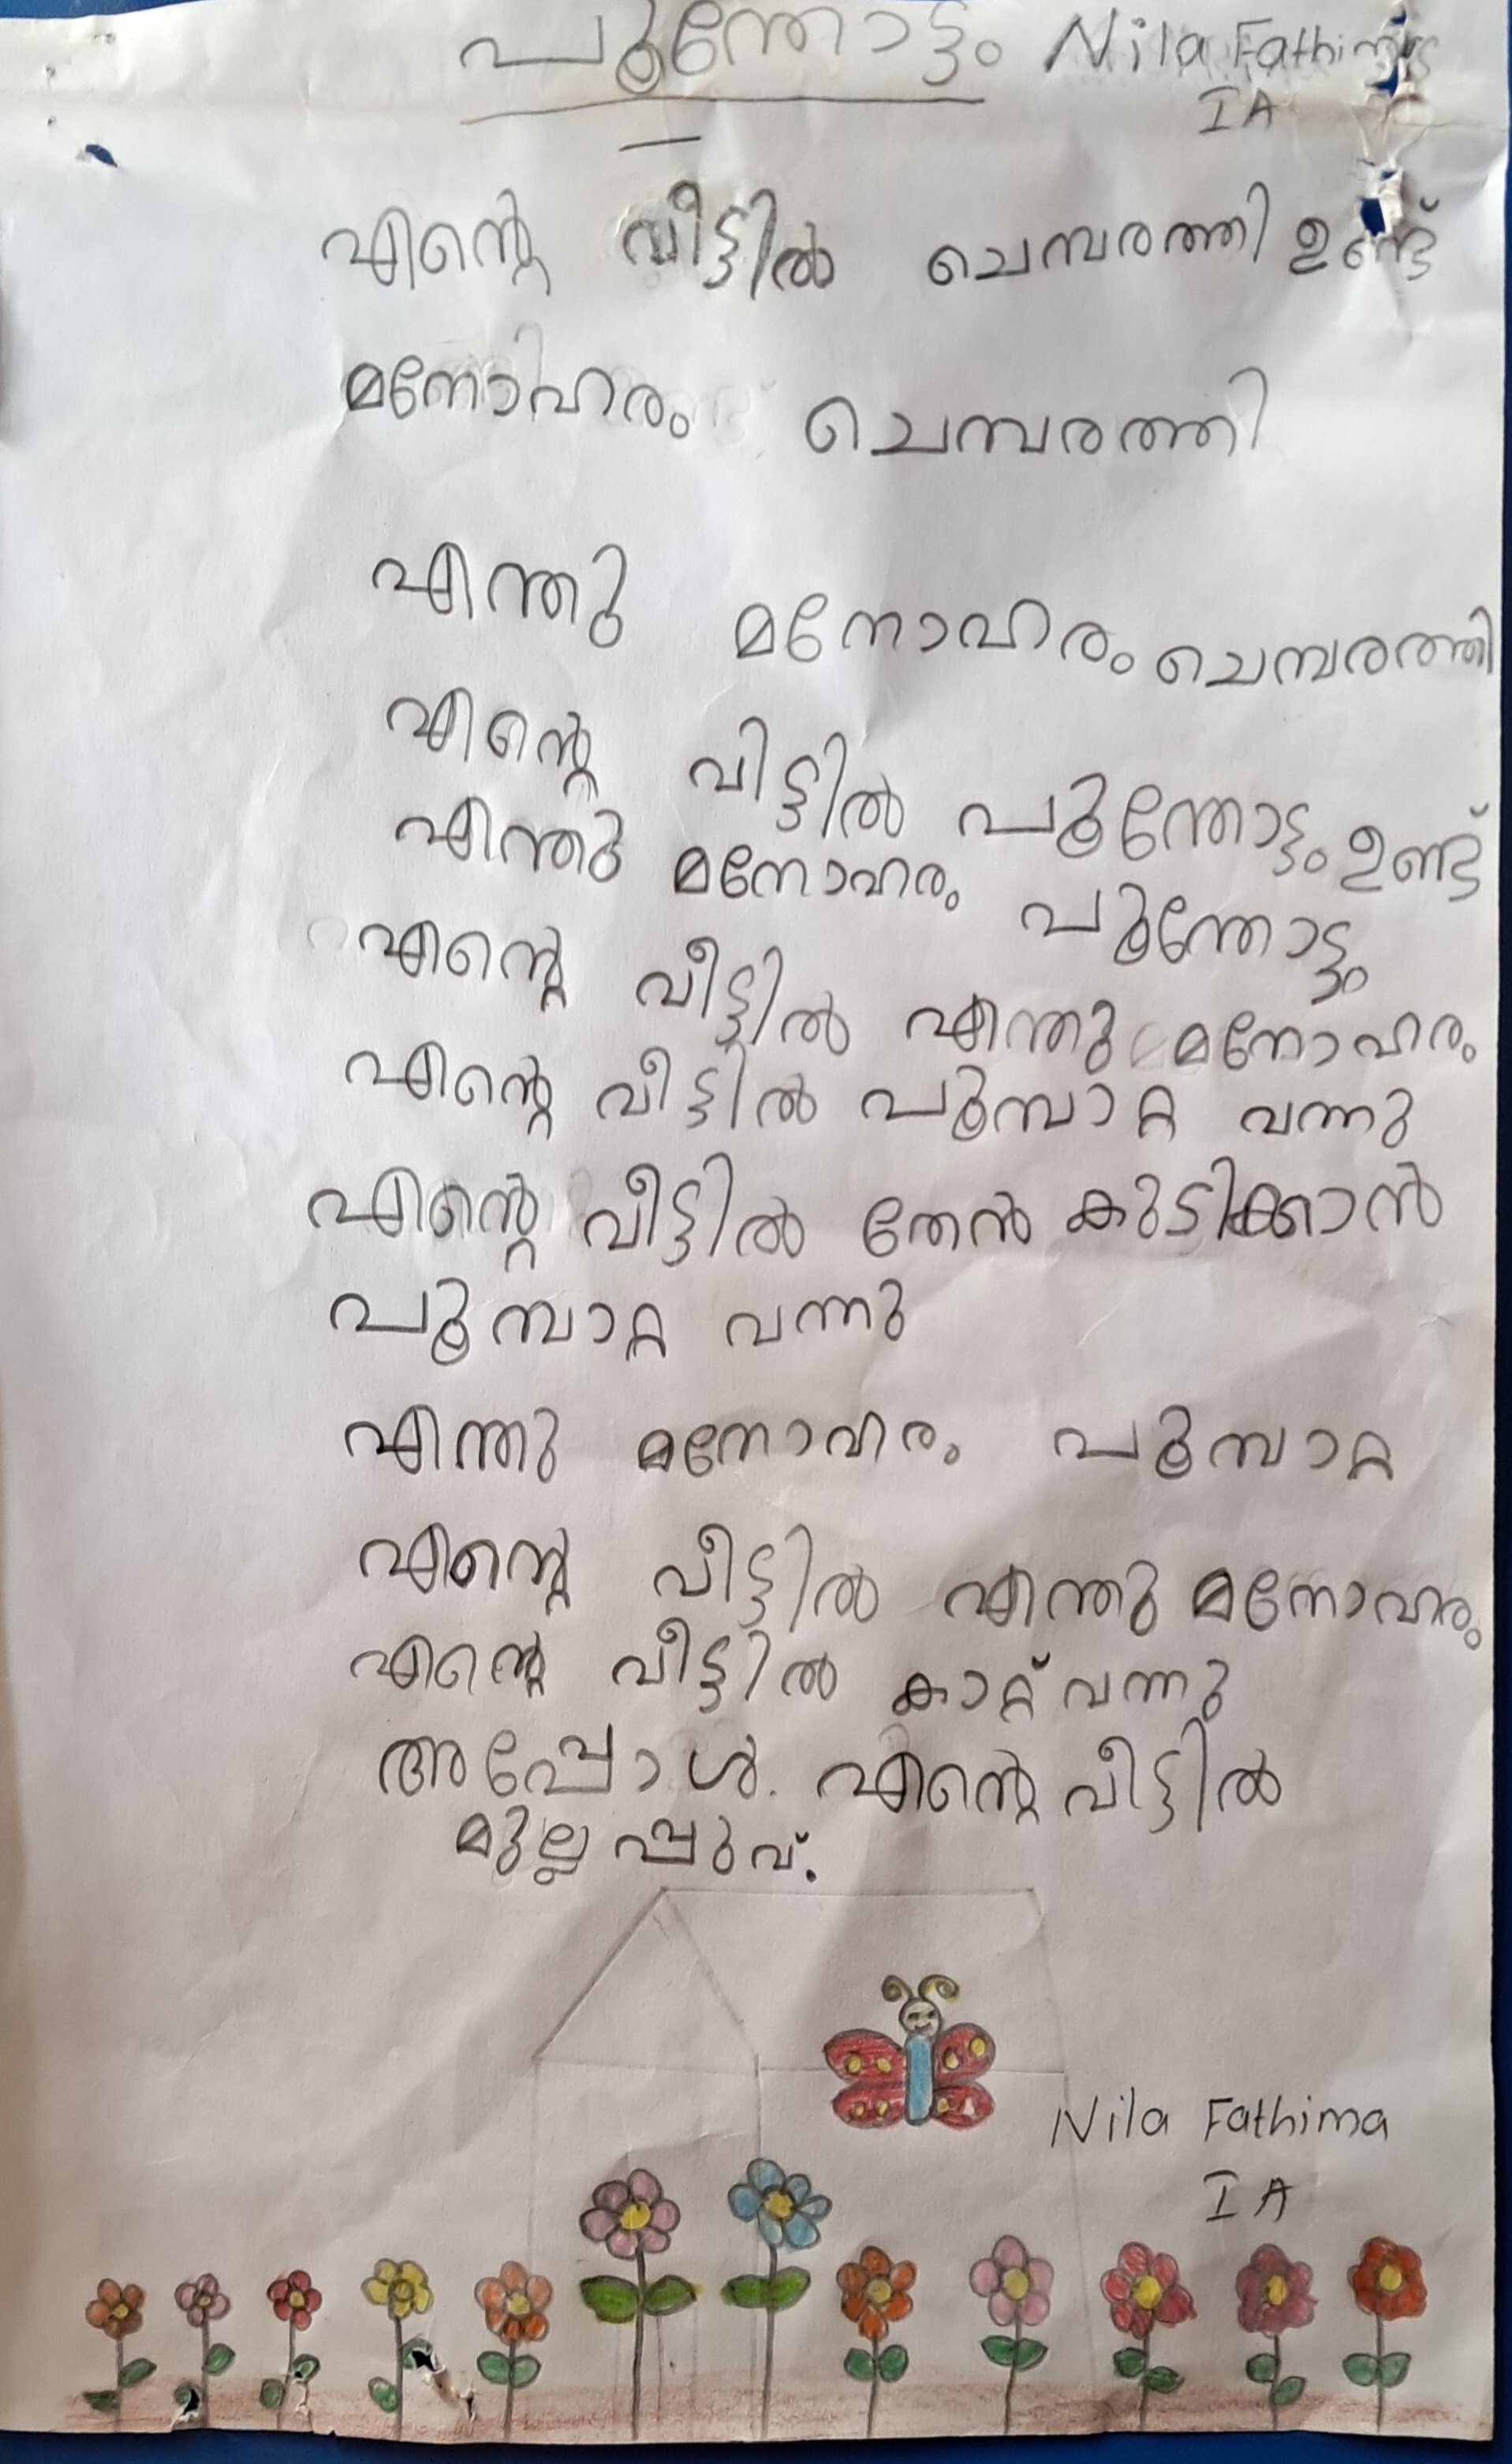 പൂന്തോട്ടം Nila Fathima
I A
എന്റെ വീട്ടിൽ ചെമ്പരത്തി ഉണ്ട്
മനോഹരം ചെമ്പരത്തി
എന്തു മനോഹരം ചെമ്പരത്തി
എന്റെ വിട്ടിൽ പൂന്തോട്ടം ഉണ്ട്
എന്തു മനോഹരം പൂന്തോട്ടം
എന്റെ വീട്ടിൽ എന്തു മനോഹരം
എന്റെ വീട്ടിൽ പൂമ്പാറ്റ വന്നു
എന്റെ വീട്ടിൽ തേൻ കുടിക്കാൻ
പൂമ്പാറ്റ വന്നു
എന്തു മനോഹരം പൂമ്പാറ്റ
എന്റെ വീട്ടിൽ എന്തു മനോഹരം
എന്റെ വീട്ടിൽ കാറ്റ് വന്നു
അപ്പോൾ. എന്റെ വീട്ടിൽ
മുല്ലപ്പുവ്.
Nila Fathima
I A